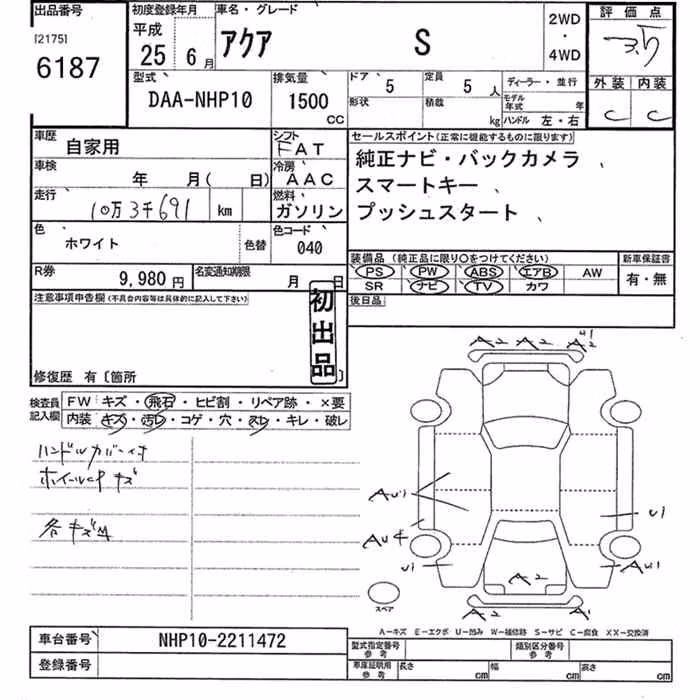 出品番号
[2175]
6187
初度登録年月
平成
25 6月
車名・グレード
アクア S
2WD
・
4WD
評価点
3.5
外装 内装
C C
型式
DAA-NHP10
排気量
1500
CC
ドア
5
形状
定員
5人
積載
kg
ディーラー・並行
モデル年式 年
ハンドル 左・右
車歴
自家用
シフト
FAT
車検
年 月( 日)
冷房
AAC
走行
10万3千691 km
燃料
ガソリン
色
ホワイト
色替
色コード
040
R券
9,980円
名変通知期限
月 日
セールスポイント(正常に機能するものに限ります)
純正ナビ・バックカメラ、
スマートキー、
プッシュスタート、
装備品 (純正品に限り○をつけてください)
PS PW ABS エアB AW
SR ナビ TV カワ
新車保証書
有・無
後日品
注意事項申告欄(不具合内容等は具体的に記入して下さい)
初出品
修復歴 有〔箇所 〕
検査員記入欄
FW キズ・飛石・ヒビ割・リペア跡・×要
内装 キズ・汚レ・コゲ・穴・スレ・キレ・破レ
ハンドルカバー付
ホイールCPキズ
各キズ凹
A2 A2 U1
A2
AU1
AU4
U1
U1
AU1
A2
A2 A1
スペア
A-キズ E-エクボ U-凹み W-補修跡 S-サビ C-腐食 XX-交換済
車台番号
NHP10-2211472
登録番号
型式指定番号
参考
類別区分番号
参考
車庫証明用
参考
長さ cm 幅 cm 高さ cm